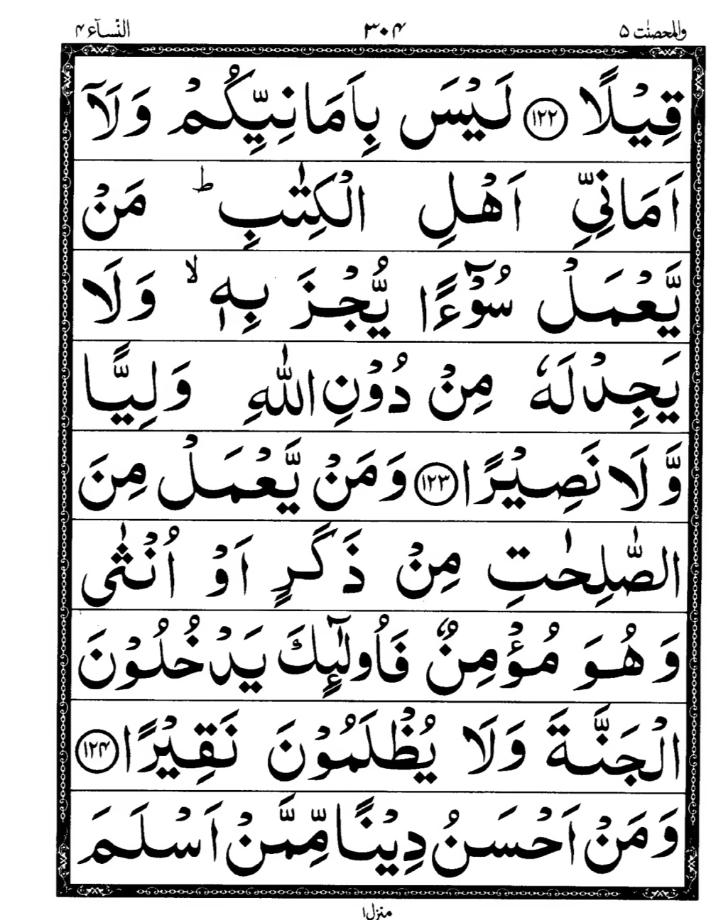 والمحصنٰت ۵ ۳۰۴ النّسآء ۴
قِيْلًا ﴿۱۲۲﴾ لَيْسَ بِاَمَانِيِّكُمْ وَلَاۤ
اَمَانِيِّ اَهْلِ الْكِتٰبِ ؕ مَنْ
يَّعْمَلْ سُوْٓءًا يُّجْزَ بِهٖ ۙ وَلَا
يَجِدْ لَهٗ مِنْ دُوْنِ اللّٰهِ وَلِيًّا
وَّلَا نَصِيْرًا ﴿۱۲۳﴾ وَمَنْ يَّعْمَلْ مِنَ
الصّٰلِحٰتِ مِنْ ذَكَرٍ اَوْ اُنْثٰى
وَهُوَ مُؤْمِنٌ فَاُولٰٓئِكَ يَدْخُلُوْنَ
الْجَنَّةَ وَلَا يُظْلَمُوْنَ نَقِيْرًا ﴿۱۲۴﴾
وَمَنْ اَحْسَنُ دِيْنًا مِّمَّنْ اَسْلَمَ
منزل۱